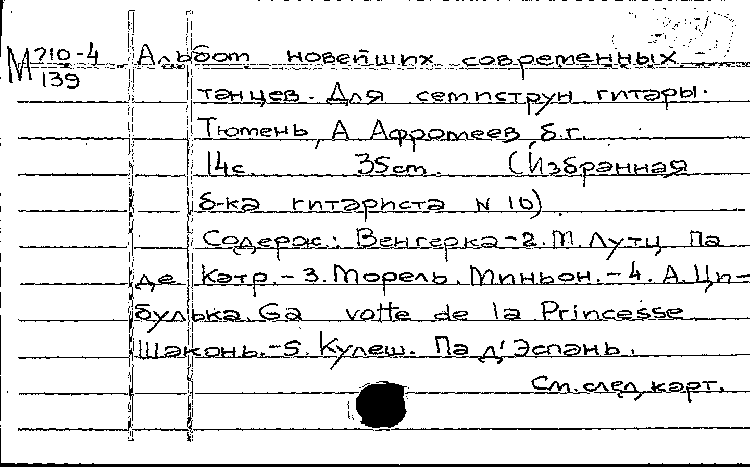 М 210-4 Альбом новейших современных
139
танцев. Для семиструн гитары.
Тюмень, А Афромеев, б.г.
14с. 35cm. (Избранная
б-ка гитариста N 16)
Содерж: Венгерка-2. М. Лутц Па
де Катр.-3. Морель. Миньон.-4. А. Ци-
булька. Ga votte de la Princesse
Шаконь.-5. Кулеш. Па д'Эспань.
См. след, карт.